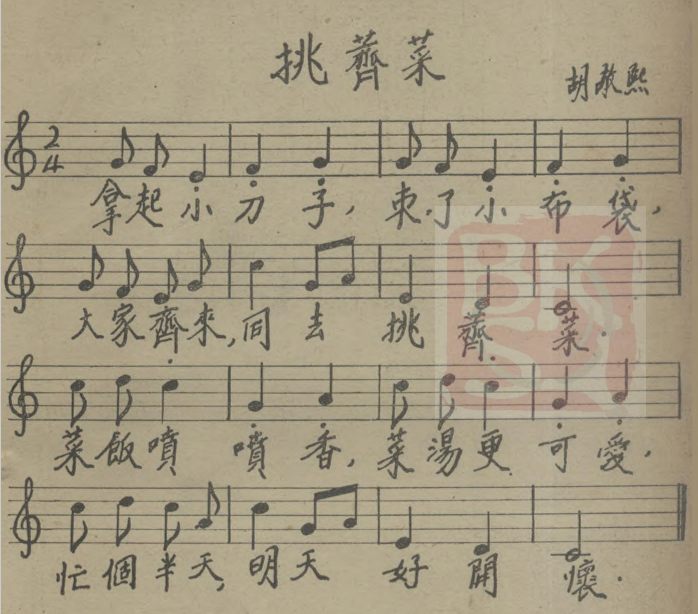 挑薺菜
胡敬熙
2
4
拿起小刀子，束了小布袋，
大家齊來，同去挑薺菜．
菜飯噴噴香，菜湯更可愛，
忙個半天，明天好開懷．
BK
SK